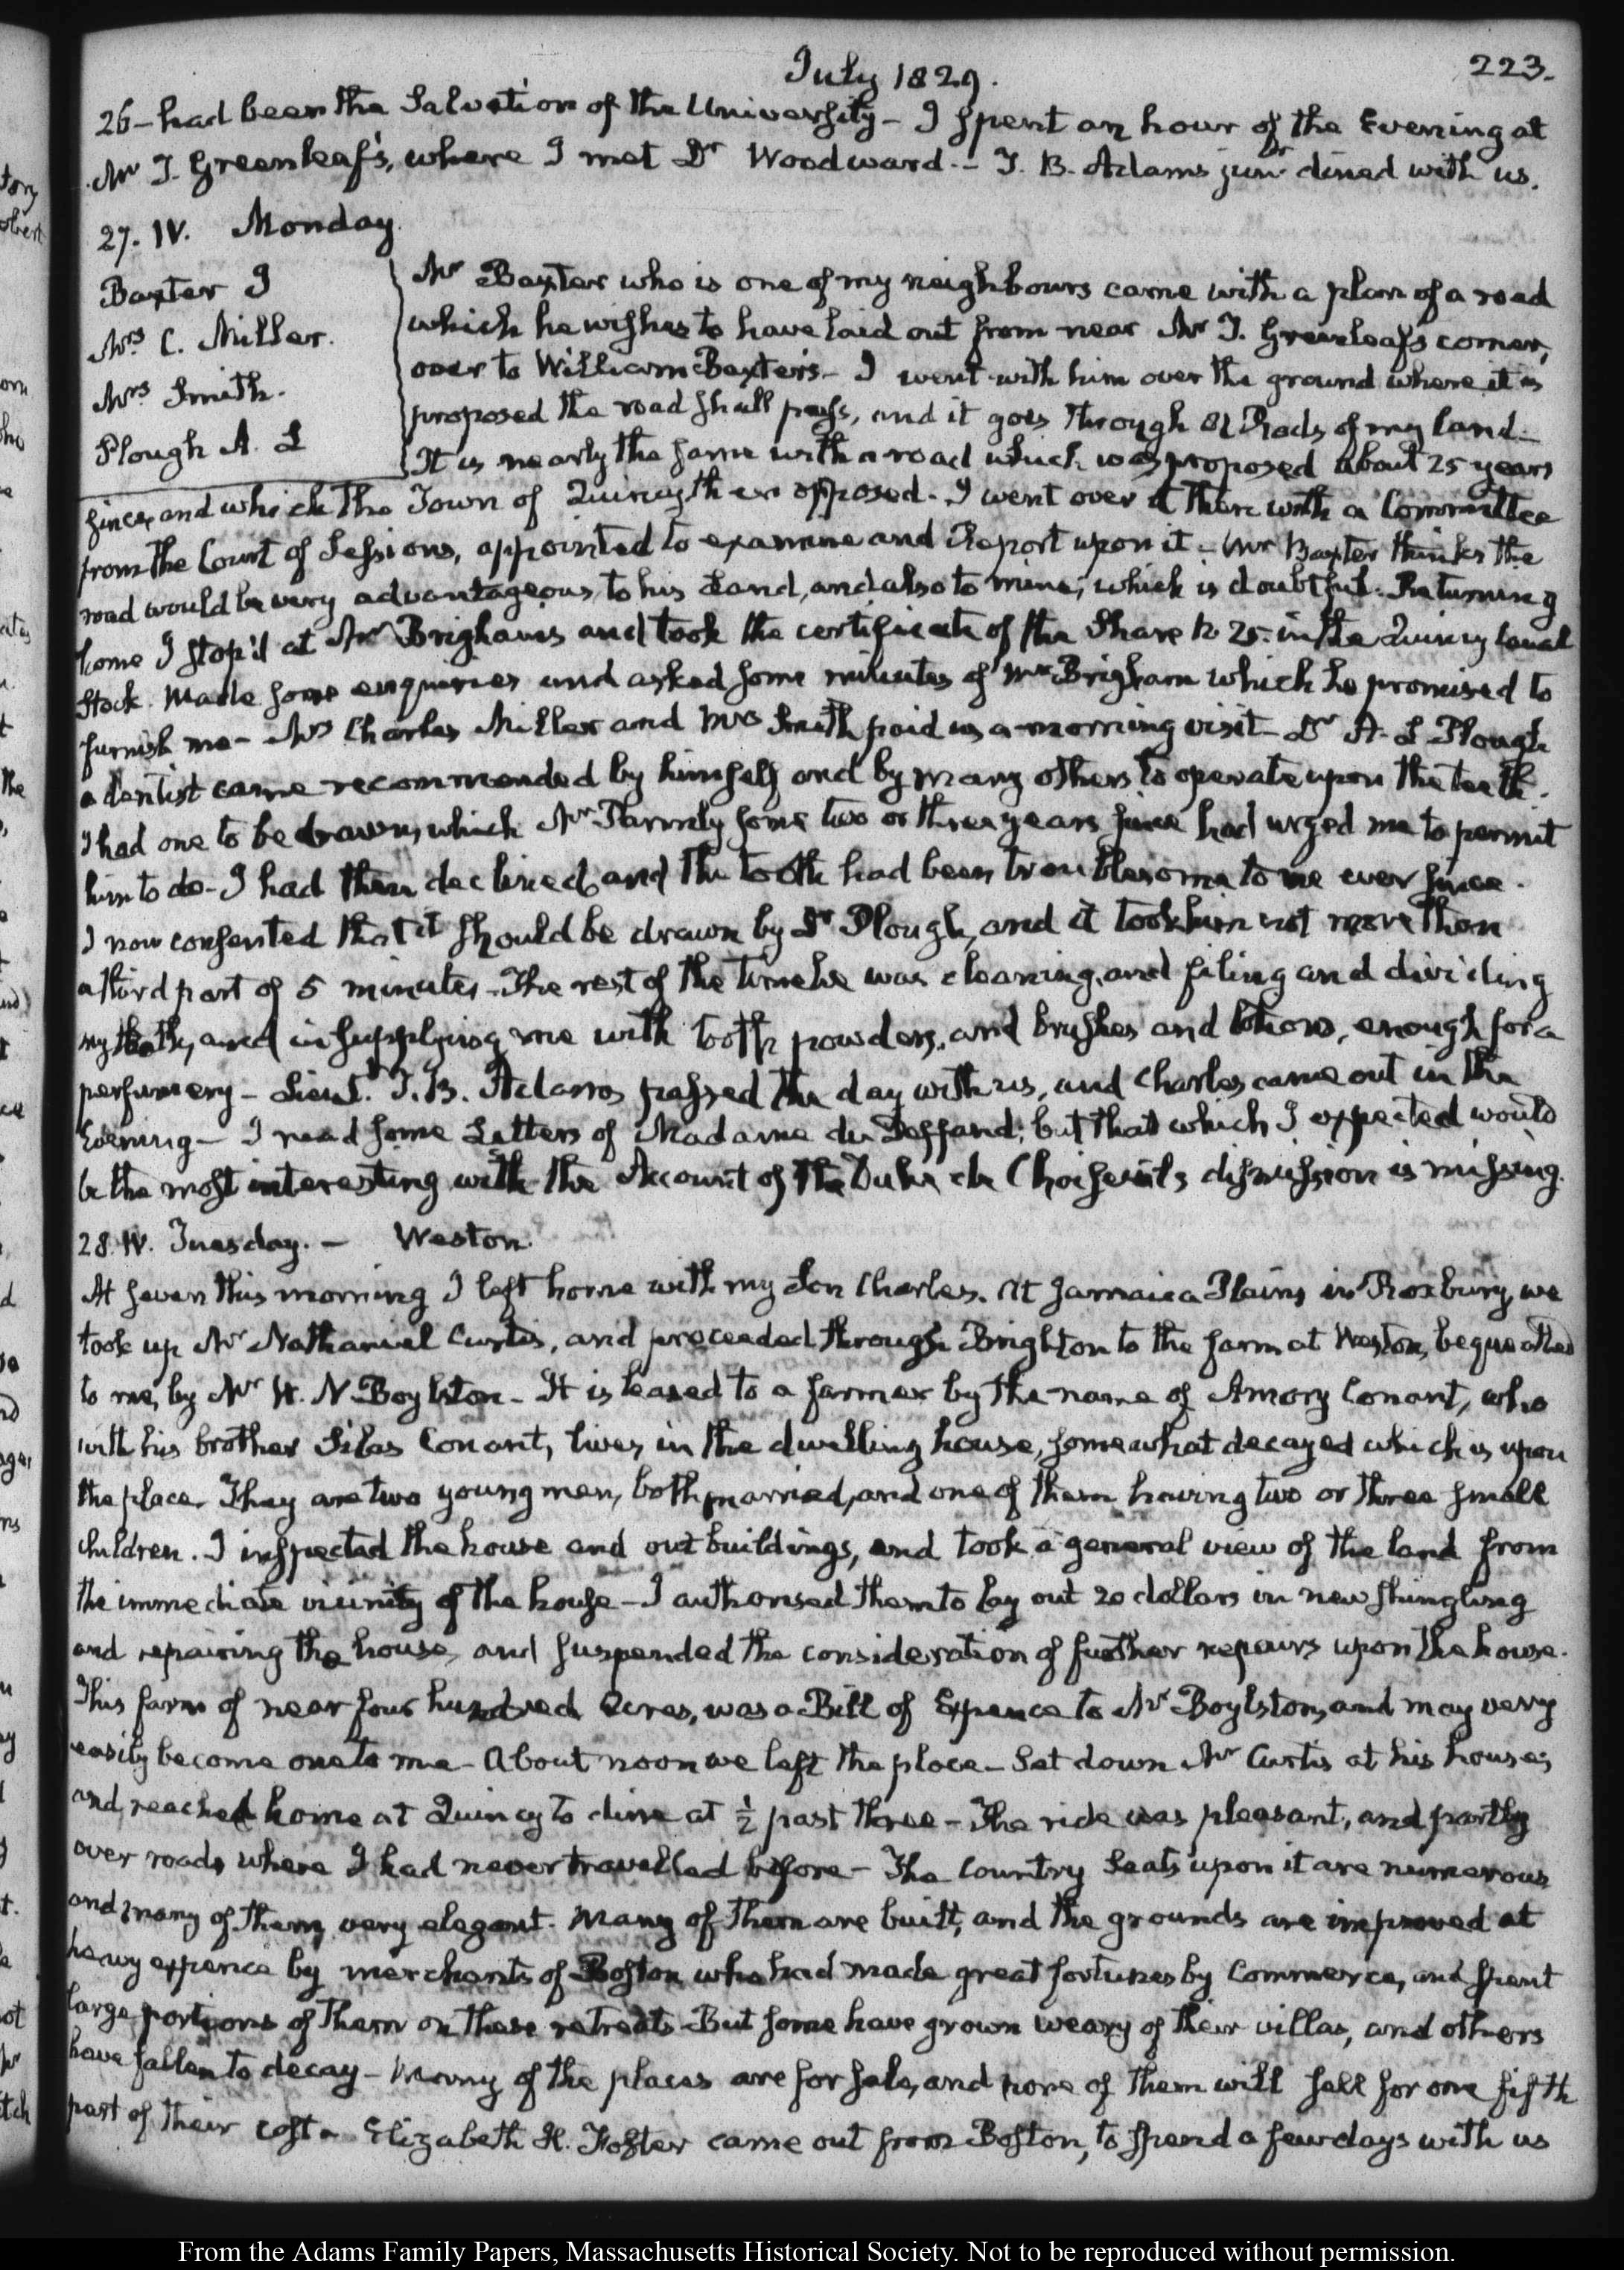 July 1829.
223.
26 – had been the Salvation of the University – I spent an hour of the Evening at
Mr J. Greenleaf's, where I met Dr Woodward. – J. B. Adams junr dined with us.
27. IV. Monday.
Baxter J
Mrs C. Miller.
Mrs Smith.
Plough A. L
Mr Baxter who is one of my neighbours came with a plan of a road
which he wishes to have laid out from near Mr J. Greenleaf's corner,
over to William Baxter's – I went with him over the ground where it is
proposed the road shall pass, and it goes through 82 Rods of my land –
It is nearly the same with a road which was proposed about 25 years
since, and which the Town of Quincy then opposed – I went over it then with a Committee
from the Court of Sessions, appointed to examine and Report upon it – Mr Baxter thinks the
road would be very advantageous to his Land, and also to mine; which is doubtful. Returning
home I stop'd at Mr Brigham's and took the certificate of the Share N. 25. in the Quincy Canal
Stock. Made some enquiries and asked some minutes of Mr Brigham which he promised to
furnish me – Mrs Charles Miller and Mrs Smith paid us a morning visit – Dr A. L Plough
a dentist came recommended by himself and by many others to operate upon the teeth.
I had one to be drawn, which Mr Parmly some two or three years since had urged me to permit
him to do – I had then declined, and the tooth had been troublesome to me ever since.
I now consented that it should be drawn by Dr Plough, and it took him not more than
a third part of 5 minutes – The rest of the time he was cleaning, and filing and dividing
my teeth, and in supplying me with tooth powders, and brushes and lotions, enough for a
perfumery – Lieut. J. B. Adams passed the day with us, and Charles came out in the
Evening – I read some Letters of Madame du Deffand; but that which I expected would
be the most interesting with the Account of the Duke de Choiseul's dismission is missing.
28. IV. Tuesday. – Weston.
At seven this morning I left home with my Son Charles. At Jamaica Plains in Roxbury, we
took up Mr Nathaniel Curtis, and proceeded through Brighton to the farm at Weston, bequeathed
to me, by Mr W. N Boylston – It is leased to a farmer by the name of Amory Conant, who
with his brother Silas Conant, lives in the dwelling house, somewhat decayed which is upon
the place. They are two young men, both married, and one of them having two or three small
children. I inspected the house and out buildings, and took a general view of the land from
the immediate vicinity of the house – I authorised them to lay out 20 dollars in new shingling
and repairing the house, and suspended the consideration of further repairs upon the house.
This farm of near four hundred Acres, was a Bill of Expence to Mr Boylston, and may very
easily become one to me – About noon we left the place – Set down Mr Curtis at his house;
and reached home at Quincy to dine at ½ past three – The ride was pleasant, and partly
over roads where I had never travelled before – The Country Seats upon it are numerous
and many of them, very elegant. Many of them are built, and the grounds are improved at
heavy expence by merchants of Boston who had made great fortunes by Commerce, and spent
large portions of them on these retreats – But some have grown weary of their villas, and others
have fallen to decay – Many of the places are for sale, and none of them will sell for one fifth
part of their cost – Elizabeth H. Foster came out from Boston, to spend a few days with us
From the Adams Family Papers, Massachusetts Historical Society. Not to be reproduced without permission.